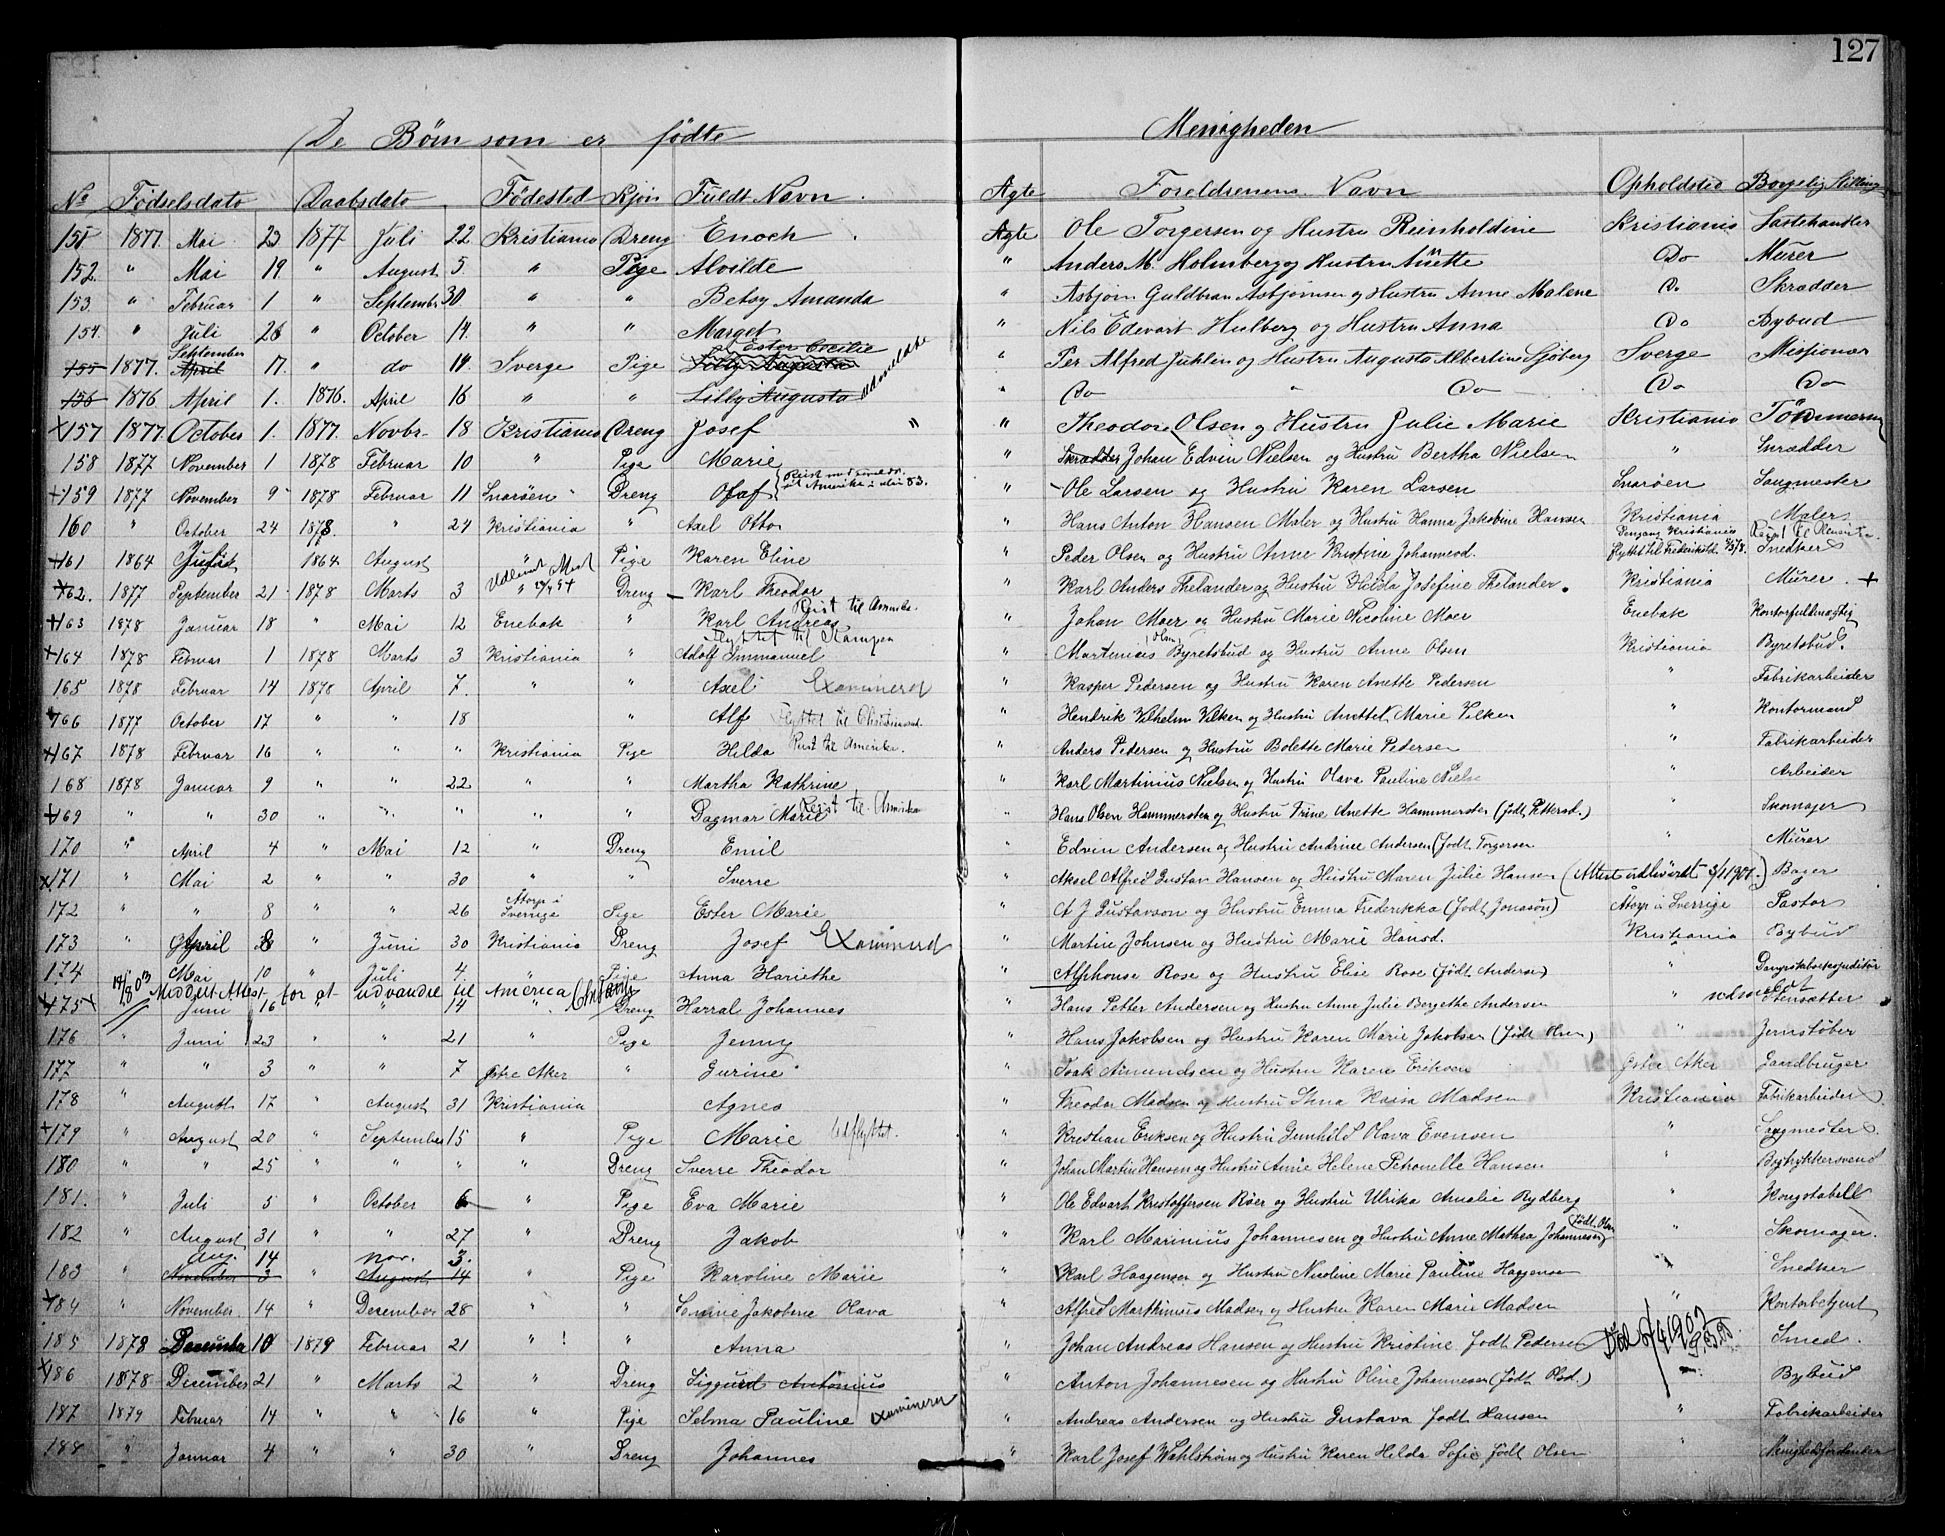 127
De Børn som er fødte Menigheden
No Fødselsdato Daabsdato Fødested Kjøn Fuldt Navn Ægte Foreldrenes Navn Opholdsted Borgelig Stilling
151 1877 Mai 23 1877 Juli 22 Kristiania Dreng Enoch Ægte Ole Torgersen og Hustru Reinholdine Kristiania
152 " Mai 19 " August 5 " Pige Alvilde " Anders M. Holmberg og Hustru Anette Do Murer
153 " Februar 1 " Septembr 30 " " Betsy Amanda " Asbjørn Guldbran Asbjørnsen og Hustru Anne Malene Do Skrædder
154 " Juli 26 " October 14 " " Marget " Nils Edevart Hulberg og Hustru Anna Do Bybud
September Ester Cecilie
155 1877 April 17 " do 14 Sverge Pige Lilly Augusta Udmeldte " Per Alfred Juhlen og Hustru Augusta Albertine Sjøberg Sverge Missionær
156 1876 April 1 1876 April 16 " " Lilly Augusta " Do " Do Do Do
x 157 1877 October 1 1877 Novbr 18 Kristiania Dreng Josef " " Theodor Olsen og Hustru Julie Marie Kristiania
158 1877 November 1 1878 Februar 10 " Pige Marie " Skrædder Johan Edvin Nielsen og Hustru Bertha Nielsen " Skrædder
+ 159 1877 November 9 1878 Februar 11 Snarøen Dreng Olaf " Ole Larsen og Hustru Karen Larsen Snarøen Saugmester
160 " October 24 1878 " 24 Kristiania " Axel Otto " Hans Anton Hansen Maler og Hustru Hanna Jakobine Hansen Kristiania Maler
+ 161 1864 1864 August " Pige Karen Eline " Peder Olsen og Hustru Anne Kristine Johannesd. Flyttet til Snedker
x 162 1877 September 21 1878 Marts 3 " Dreng Karl Theodor " Karl Anders Thelander og Hustru Hilda Josefine Thelander Kristiania Murer +
Reist til Amerika
+ 163 1878 Januar 18 " Mai 12 Enebak " Karl Andreas " Johan Moer og Hustru Marie Nicoline Moer Enebak Kontorfuldmægtig
Flyttet til Kampen (Olsen)
x 164 1878 Februar 1 1878 Marts 3 Kristiania " Adolf Immanuel " Martinius Byretsbud og Hustru Anne Olsen Kristiania Byretsbud
165 1878 Februar 14 1878 April 7 " " Axel Examinerd " Kasper Pedersen og Hustru Karen Anette Pedersen " Fabrikarbeider
x 166 1877 October 17 " " 18 " Alf Flyttet til " Hendrik Vilhelm Vilken og Hustru Anette Marie Vilken " Kontormand
x 167 1878 Februar 16 " " " Kristiania Pige Hilda Reist til Amerika " Anders Pedersen og Hustru Bolette Marie Pedersen " Fabrikarbeider
168 1878 Januar 9 " " 22 " " Martha Kathrine " Karl Martinius Nielsen og Hustru Olava Pauline Niels " Arbeider
x 169 " " 30 " " " " " Dagmar Marie Reist til Amerika " Hans Olsen Hammersten og Hustru Trine Anette Hammersten (født Pettersd.) " Skomager
170 " April 4 " Mai 12 " Dreng Emil " Edvin Andersen og Hustru Andrine Andersen (født Torgersen " Murer
x 171 " Mai 2 " " 30 " " Sverre " Aksel Alfred Gustav Hansen og Hustru Maren Julie Hansen (Attest udleveret 3/1 1901.) Bager
172 " " 8 " " 26 Åtorp i Sverrige Pige Ester Marie " A J Gustavson og Hustru Emma Frederikka (født Jonasón) Åtorp i Sverrige Pastor
173 " April 8 " Juni 30 Kristiania Dreng Josef Examinerd " Martin Johnsen og Hustru Marie Hansd. Kristiania Bybud
174 " Mai 10 " Juli 4 " Pige Anna Hariethe " Alphonse Rose og Hustru Elise Rose (født Andersen)
14/8 03 Meddelt Attest for at udvandre til America
x 175 x Juni 16 " " 14 " Dreng Harral Johannes " Hans Petter Andersen og Hustru Anne Julie Bergethe Andersen " udmeldt Stensætter
176 " Juni 23 " " 21 " Pige Jenny " Hans Jakobsen og Hustru Karen Marie Jakobsen (Født Olsen) " Jernstøber
177 " " 3 " " 7 Østre Aker " Gurine " Isak Amundsen og Hustru Karen Eriksen Østre Aker Gaardbruger
178 " August 17 " August 31 Kristiania Agnes " Theodor Madsen og Hustru Stina Kaisa Madsen Kristiania Fabrikarbeider
x 179 " August 20 " September 15 " Pige Marie Udflyttet. " Kristian Eriksen og Hustru Gunhild Olava Evensen " Sagmester
180 " " 25 " " " " Dreng Sverre Theodor " Johan Martin Hansen og Hustru Anne Helene Petronelle Hansen " Bogtrykkersvend
181. " Juli 5 " October 6 " Pige Eva Marie " Ole Edvart Kristoffersen Røer og Hustru Ulrika Amalie Rydberg " Kongstabell
182 " August 31 " " 27 " Dreng Jakob " Karl Marinius Johannesen og Hustru Anne Mathea Johannesen (født Olsen) " Skomager.
Aug. 14 Nov. 3.
183 " November 3 " August 14 " Pige Karoline Marie " Karl Haagensen og Hustru Nicoline Marie Pauline Haagensen " Snedker
x 184 " November 14 " Desember 28 " " Jakobine Olava " Alfred Marthinius Madsen og Hustru Karen Marie Madsen " Kontorbetjent
185 1878 Desember 10 1879 Februar 21 " " Anna " Johan Andreas Hansen og Hustru Kristine født Pedersen Død Smed
x 186 1878 Desember 21 " Marts 2 " Dreng Siggurd Antonius " Anton Johannesen og Hustru Oline Johannesen (født Olsd.) " Bybud
187 1879 Februar 14 " " 16 " Pige Selma Pauline Examinerd " Andreas Andersen og Hustru Gustava født Hansen " Fabrikarbeider
188 " Januar 4 " " 30 " Dreng Johannes " Karl Josef Wahlstrøm og Hustru Karen Hilda Sofie født Olsen " Menighedsforstander